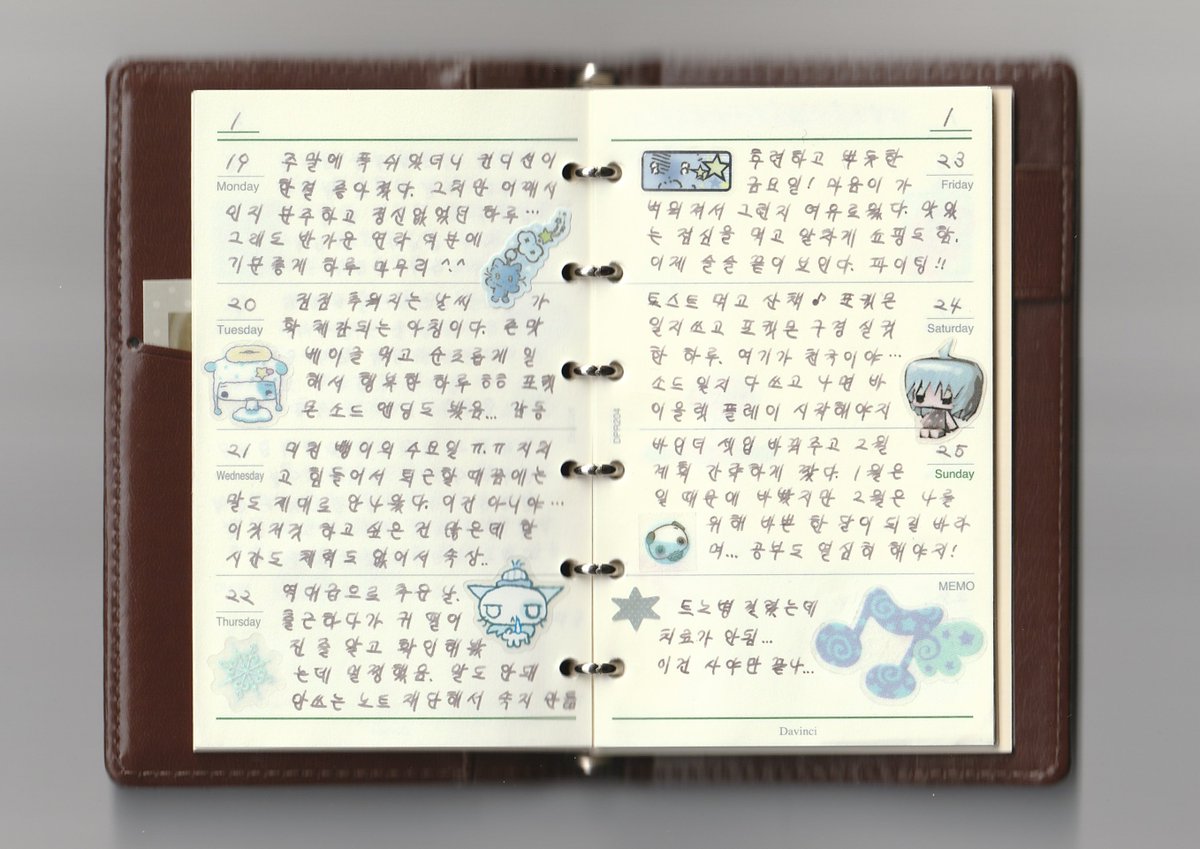 1
19 Monday
주말에 푹 쉬었더니 컨디션이
한결 좋아졌다. 그렇지만 어째서
인지 분주하고 정신없었던 하루…
그래도 반가운 연락 덕분에
기분좋게 하루 마무리 ^^
20 Tuesday
점점 추워지는 날씨 가
확 체감되는 아침이다. 존맛
베이글 먹고 순조롭게 일
해서 행복한 하루 ㅎㅎ 포켓
몬 소드 엔딩도 봤음... 감동
21 Wednesday
마전 뺑이의 수요일 ㅠㅠ 지치
고 힘들어서 퇴근할 때쯤에는
말도 제대로 안나왔다. 이건 아니야…
이것저것 하고 싶은 건 많은데 할
시간도 체력도 없어서 속상..
22 Thursday
역대급으로 추운 날.
출근하다가 귀 떨어
진 줄 알고 확인해봤
는데 멀쩡했음. 말도 안돼
안쓰는 노트 재단해서 속지 만듦
1
23 Friday
후련하고 뿌듯한
금요일! 마음이 가
벼워져서 그런지 여유로웠다. 맛있
는 점심을 먹고 알차게 쇼핑도 함.
이제 슬슬 끝이 보인다. 파이팅!!
24 Saturday
토스트 먹고 산책♪ 포켓몬
일지쓰고 포켓몬 구경 실컷
한 하루. 여기가 천국이야…
소드 일지 다 쓰고 나면 바
이올렛 플레이 시작해야지
25 Sunday
바인더 셋업 바꿔주고 2월
계획 간략하게 짰다. 1월은
일 때문에 바빴지만 2월은 나를
위해 바쁜 한 달이 되길 바라
며... 공부도 열심히 해야지!
MEMO
트노병 걸렸는데
치료가 안됨...
이건 사야만 끝나...
DPR204
Davinci